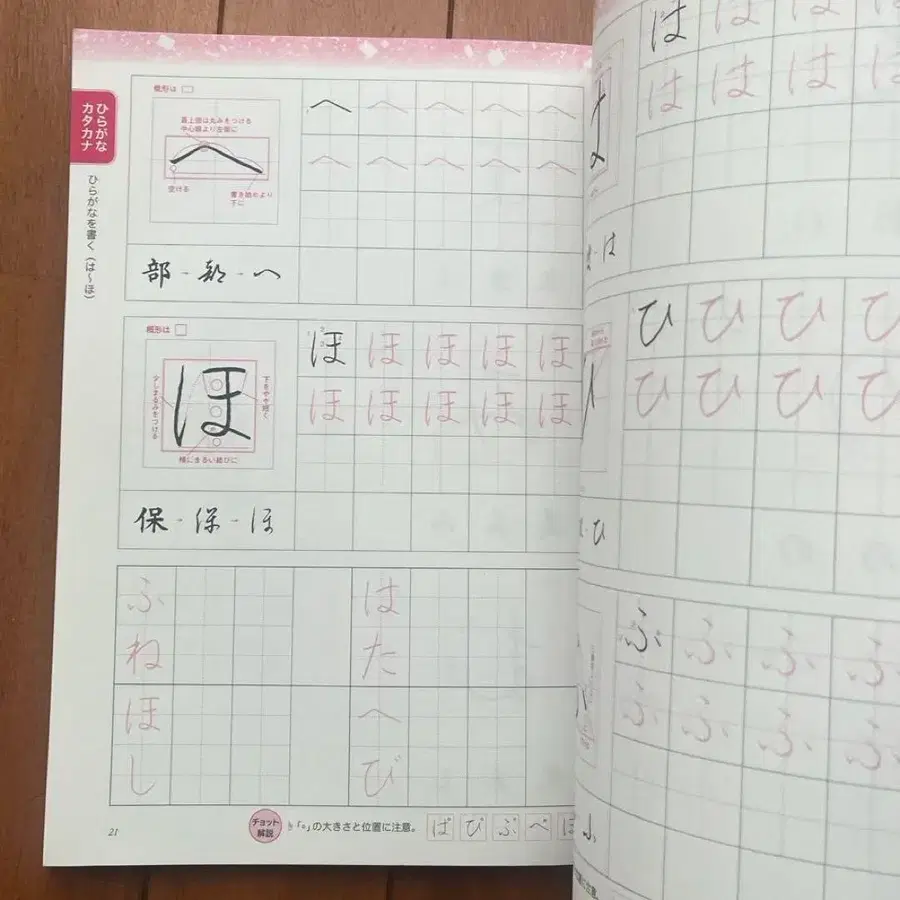 ひらがな
カタカナ
ひらがなを書く（は～ほ）
概形は
最上部は丸みをつける
中心線より左側に
空ける
書き始めより
下に
へ へ へ へ へ
へ へ へ へ へ
部 - 部 - へ
概形は
少しまるみをつける
ほ
下をやや短く
横にまるい結びに
ほ ほ ほ ほ ほ
ほ ほ ほ ほ ほ
保 - 保 - ほ
ふね
はた
ほし
へび
チョット
解説
「゜」の大きさと位置に注意。
ぱ ぴ ぷ ぺ ぽ
21
は は は は
は は は は
は
ひ ひ ひ ひ
ひ ひ ひ ひ
ひ
ふ ふ ふ ふ
ふ ふ ふ ふ
ふ